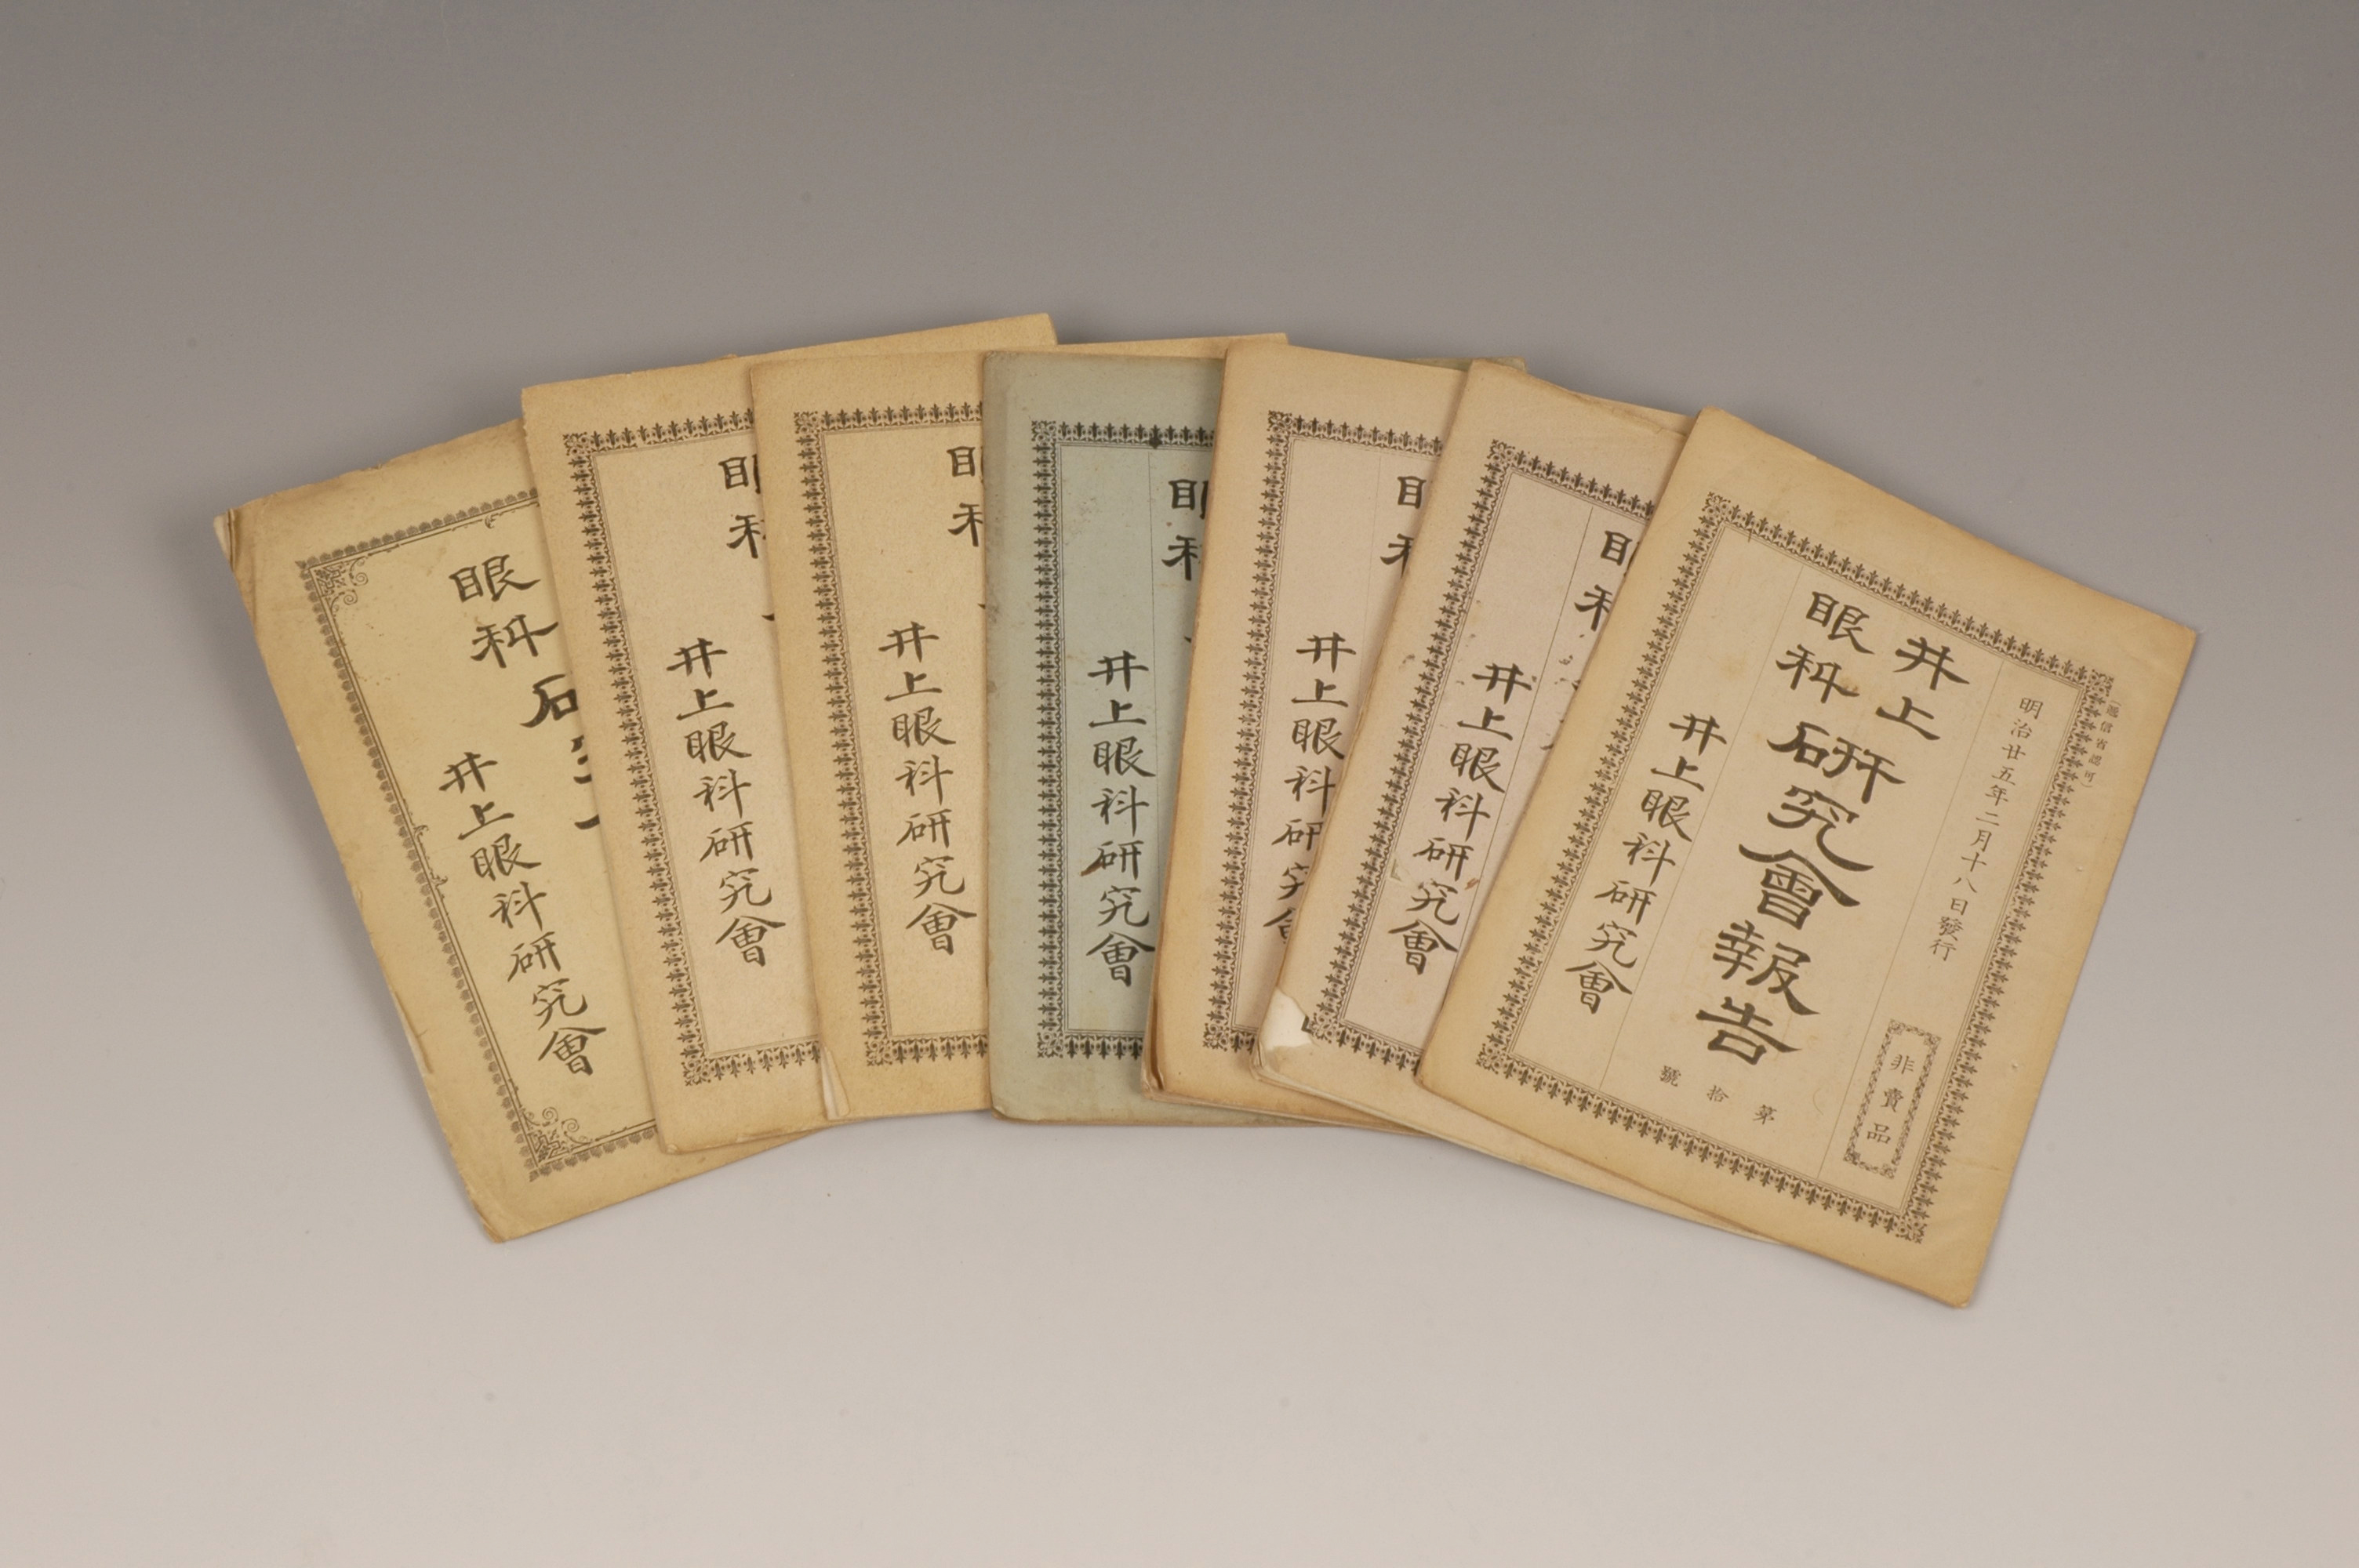 （遞信省認可）
明治廿五年二月十八日發行
非賣品
井上
眼科
研究會報告
第拾號
井上眼科研究會
井上眼科研究會
井上眼科研究會
井上眼科研究會
井上眼科研究會
井上眼科研究會
眼科
井上眼科研究會